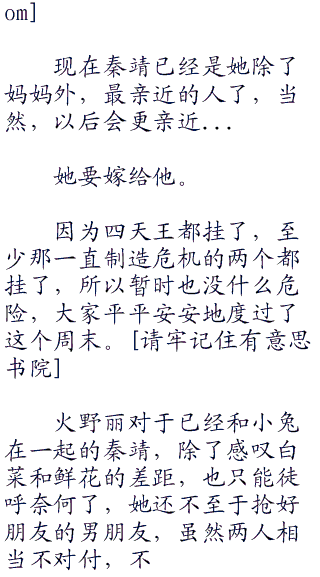 om]
现在秦靖已经是她除了
妈妈外，最亲近的人了，当
然，以后会更亲近...
她要嫁给他。
因为四天王都挂了，至
少那一直制造危机的两个都
挂了，所以暂时也没什么危
险，大家平平安安地度过了
这个周末。[请牢记住有意思
书院]
火野丽对于已经和小兔
在一起的秦靖，除了感叹白
菜和鲜花的差距，也只能徒
呼奈何了，她还不至于抢好
朋友的男朋友，虽然两人相
当不对付，不